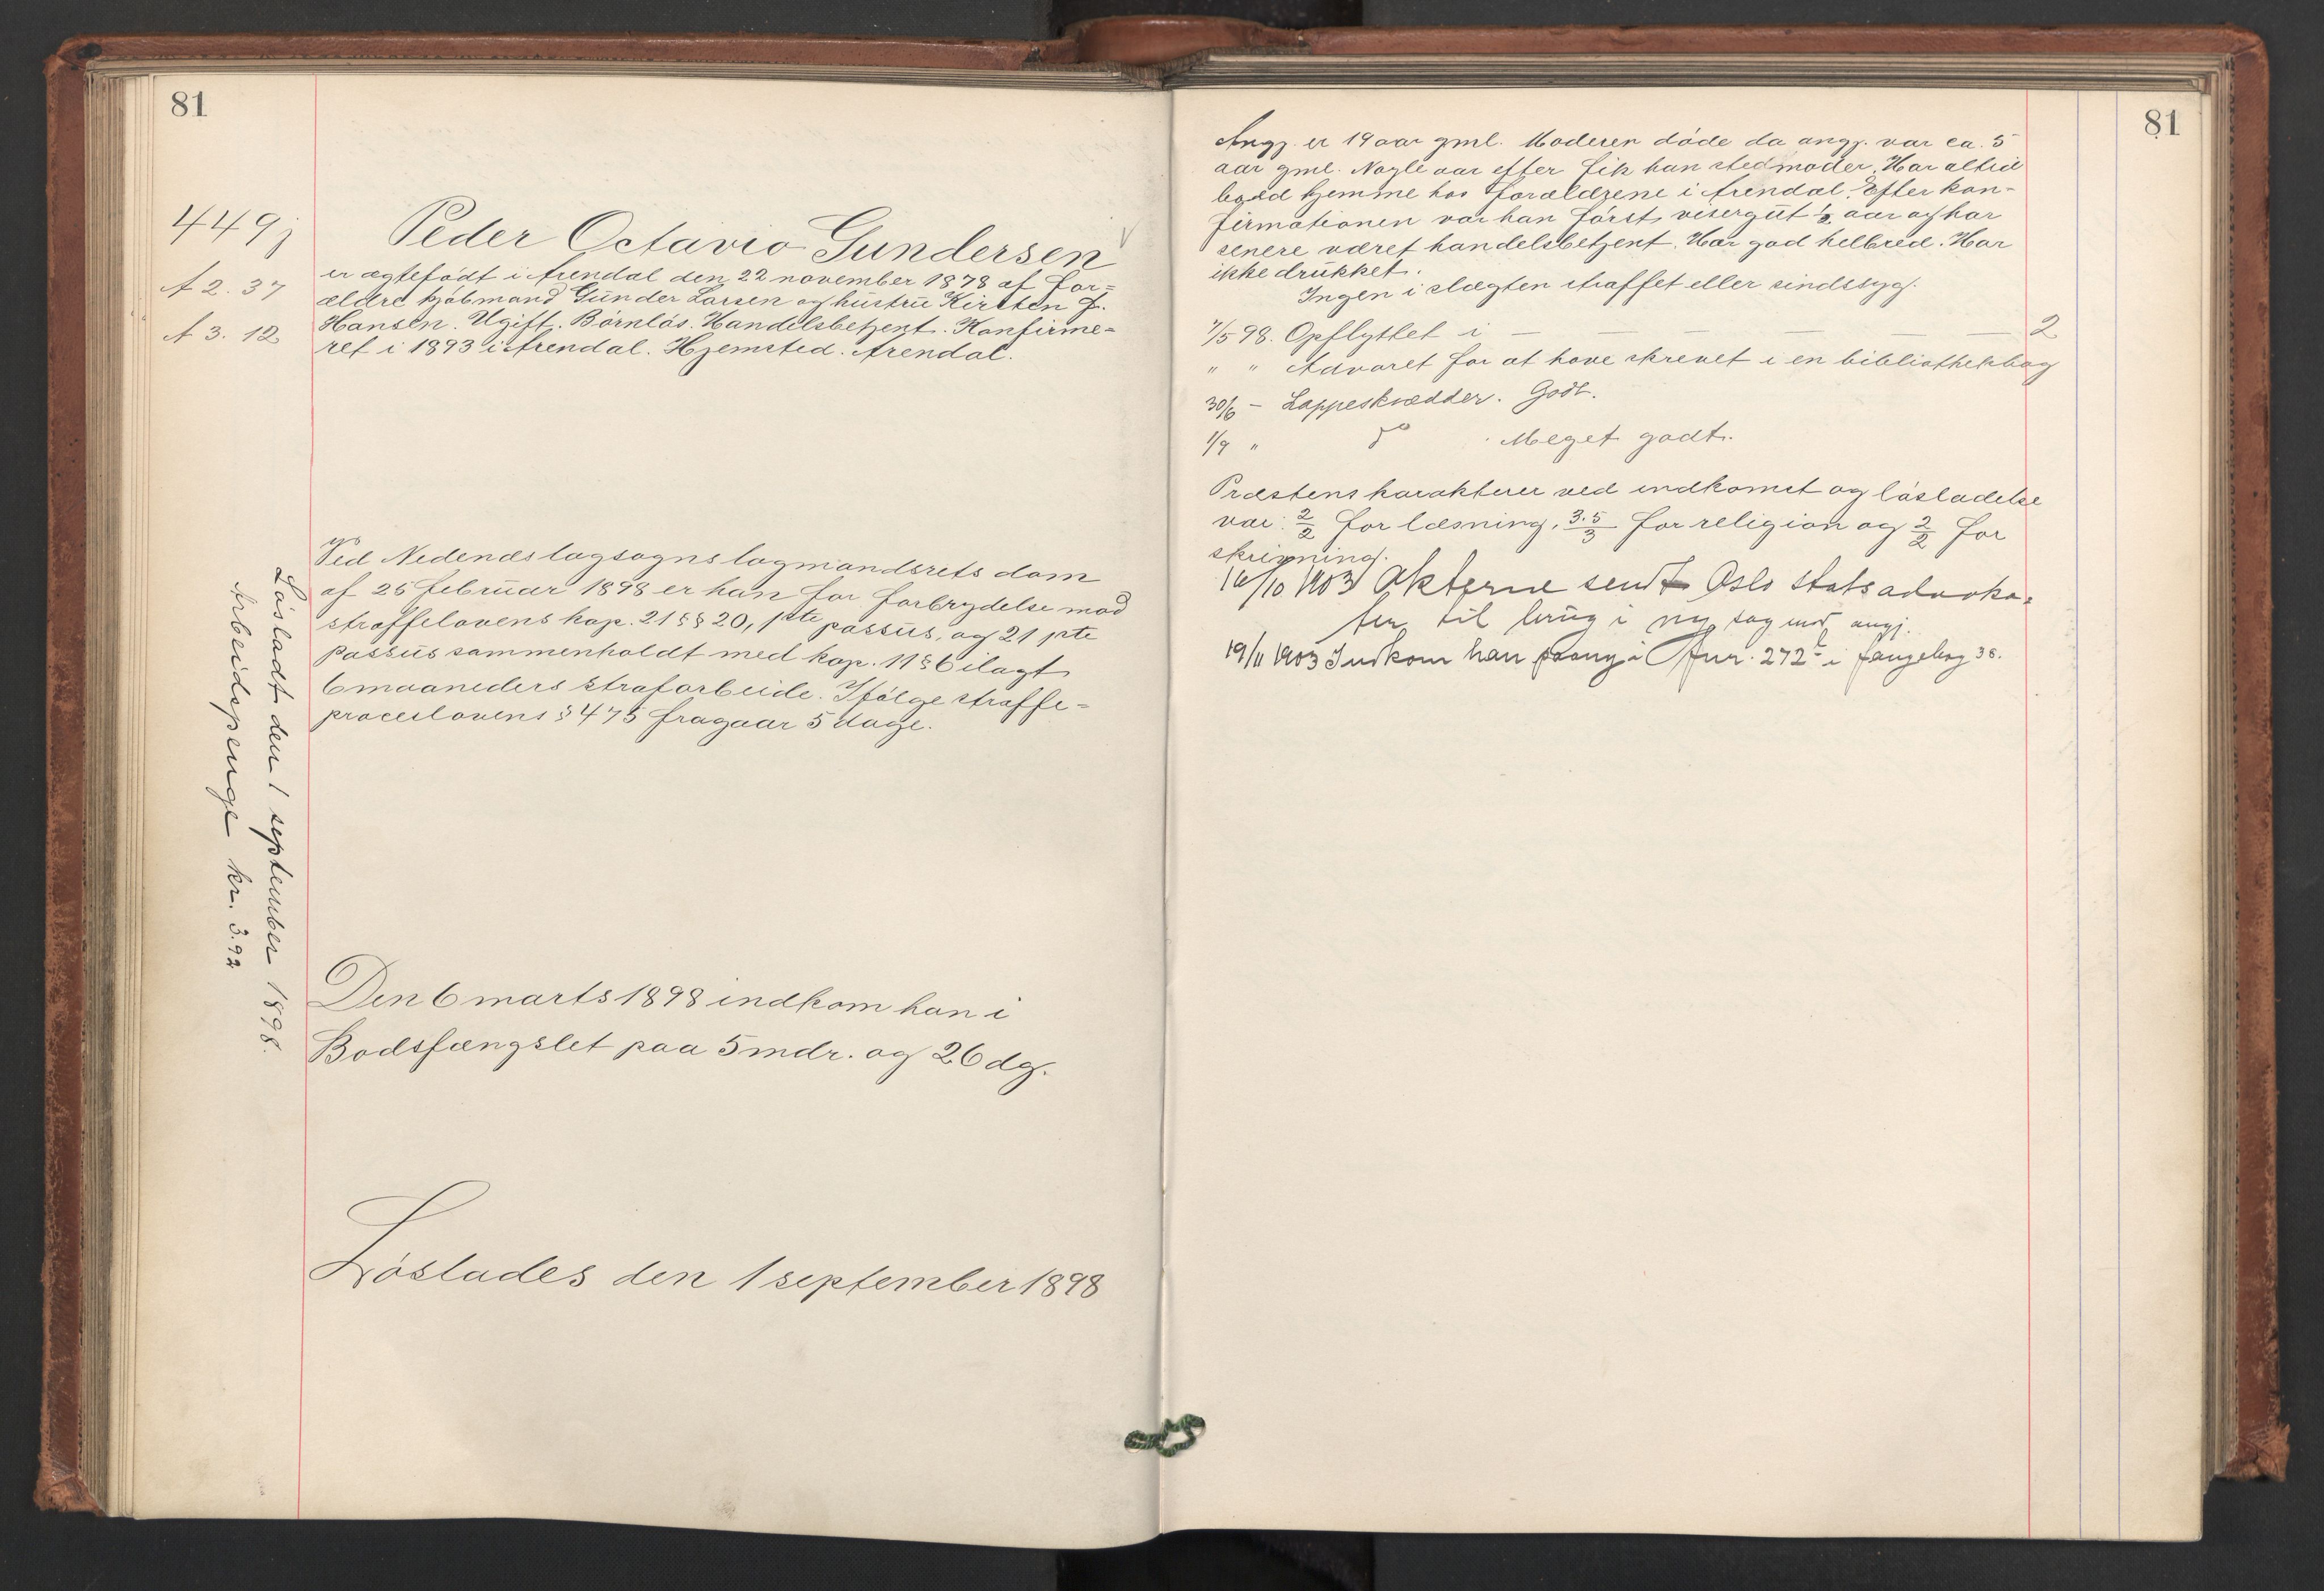 81
449j
A 2. 37
A 3. 12
Peder Octavio Gundersen
er ægtefödt i Arendal den 22 november 1878 af for=
ældre kjöbmand Gunder Larsen og hustru Kirsten J.
Hansen. Ugift. Börnlös. Handelsbetjent. Konfirme=
ret i 1893 i Arendal. Hjemsted. Arendal.
Ved Nedenæs lagsogns lagmandsrets dom
af 25 februar 1898 er han for forbrydelse mod
straffelovens kap. 21 §§ 20, 1ste passus, og 21 1ste
passus sammenholdt med kap. 11 § 6 ilagt
6 maaneders strafarbeide. Ifölge straffe=
proceslovens § 475 fragaar 5 dage.
Den 6 marts 1898 indkom han i
Bodsfængslet paa 5 mdr. og 26 dg.
Löslades den 1 september 1898
Lösladt den 1 september 1898.
Arbeidspenge kr. 3.92
81
Angj. er 19 aar gml. Moderen döde da angj. var ca. 5
aar gml. Nogle aar efter fik han stedmoder. Har altid
boed hjemme hos forældrene i Arendal. Efter kon=
firmationen var han först visergut ½ aar og har
senere været handelsbetjent. Har god helbred. Har
ikke drukket.
Ingen i slægten straffet eller sindssyg.
7/5 98. Opflyttet i — — — — — 2
" " Advaret for at have skrevet i en bibliothekbog
30/6 - Lappeskrædder. Godt.
1/9 " do Meget godt.
Præstens karakterer ved indkomst og lösladelse
var: 2/2 for læsning, 3.5/3 for religion og 2/2 for
skrivning.
16/10 1903 Akterne sendt Oslo statsadvoka=
ter til brug i ny sag mod angj.
19/11 1903 Indkom han paany i Fnr. 272 i fangebog 38.